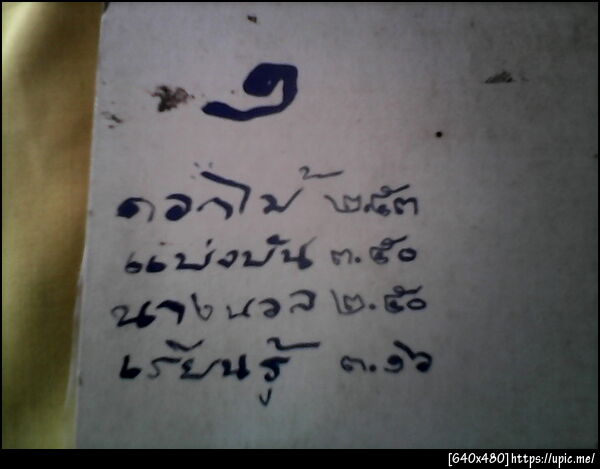 ๑
ดอกไม้ ๒.๕๓
แบ่งปัน ๓.๕๐
นางนวล ๒.๕๐
เรียนรู้ ๓.๑๖
[640x480]https://upic.me/